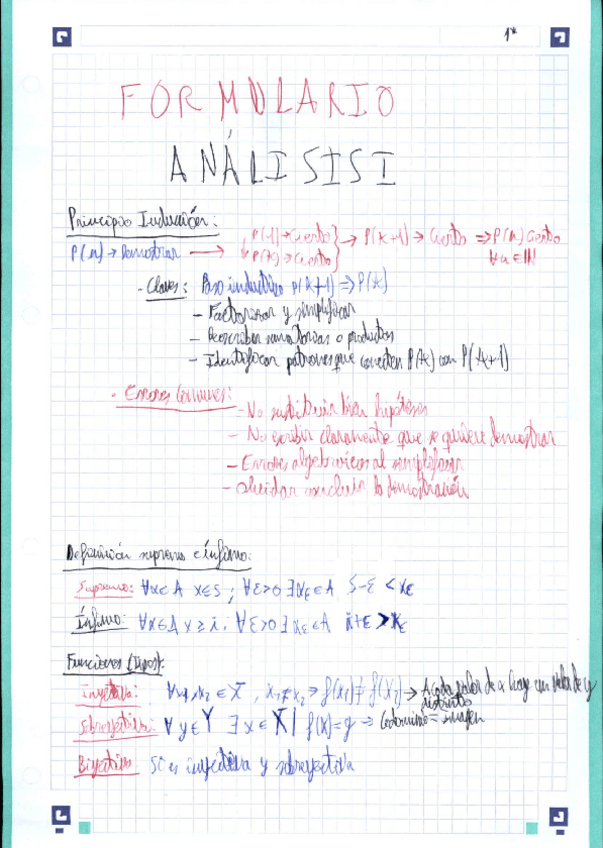 1*
FORMULARIO
ANÁLISIS I
Principio Inducción:
P(n) → Demostrar → P(1) → Cierto } → P(k+1) → Cierto ⇒ P(n) Cierto
P(k) → Cierto } ∀n ∈ ℕ!
- Claves: Paso inductivo P(k+1) ⇒ P(k)
- Factorizar y simplificar
- Reescribir sumatorias o productos
- Identificar patrones que conecten P(k) con P(k+1)
- Errores Comunes:
- No sustituir bien hipótesis
- No escribir claramente que se quiere demostrar
- Errores algebraicos al simplificar
- Olvidar concluir la demostración
Definición supremo e ínfimo:
Supremo: ∀x∈A x≤S ; ∀ε>0 ∃xε∈A S-ε < xε
Ínfimo: ∀x∈A x≥i, ∀ε>0 ∃xε∈A i+ε > xε
Funciones (Tipos):
Inyectiva: ∀x1,x2 ∈ X, x1≠x2 ⇒ f(x1)≠f(x2) → A cada valor de x hay un valor de y
distinto
Sobreyectiva: ∀y∈Y ∃x∈X | f(x)=y ⇒ Codominio = imagen
Biyectiva: Si es inyectiva y sobreyectiva